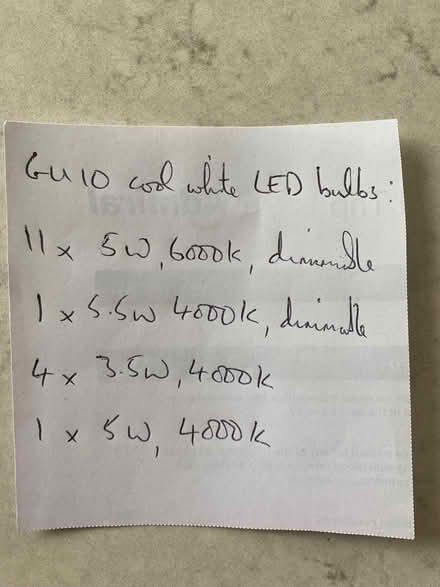 GU10 cool white LED bulbs:
11 x 5W, 6000K, dimmable
1 x 5.5W 4000K, dimmable
4 x 3.5W, 4000K
1 x 5W, 4000K